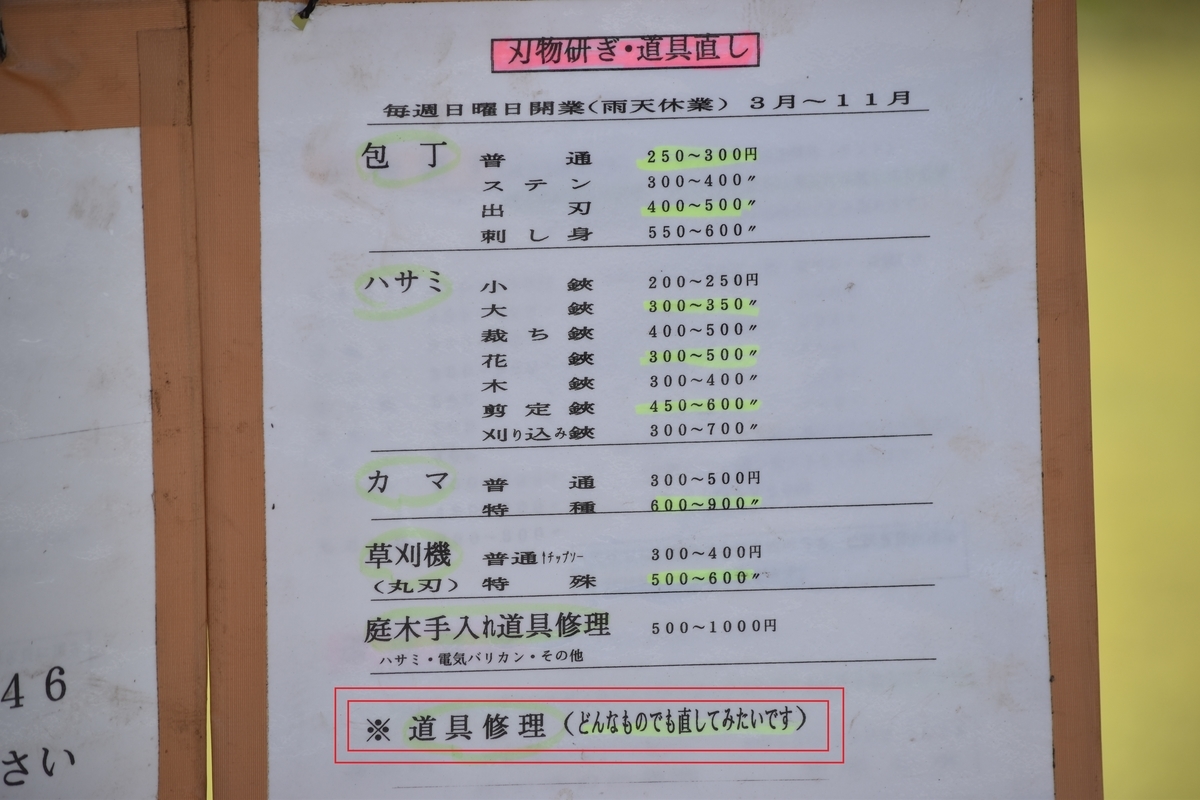 刃物研ぎ・道具直し
毎週日曜日開業(雨天休業) 3月~11月
包丁 普通 250~300円
ステン 300~400〃
出刃 400~500〃
刺し身 550~600〃
ハサミ 小鋏 200~250円
大鋏 300~350〃
裁ち鋏 400~500〃
花鋏 300~500〃
木鋏 300~400〃
剪定鋏 450~600〃
刈り込み鋏 300~700〃
カマ 普通 300~500円
特種 600~900〃
草刈機 普通 300~400円
(丸刃) 特殊 500~600〃
庭木手入れ道具修理 500~1000円
ハサミ・電気バリカン・その他
※ 道具修理(どんなものでも直してみたいです)
46
さい